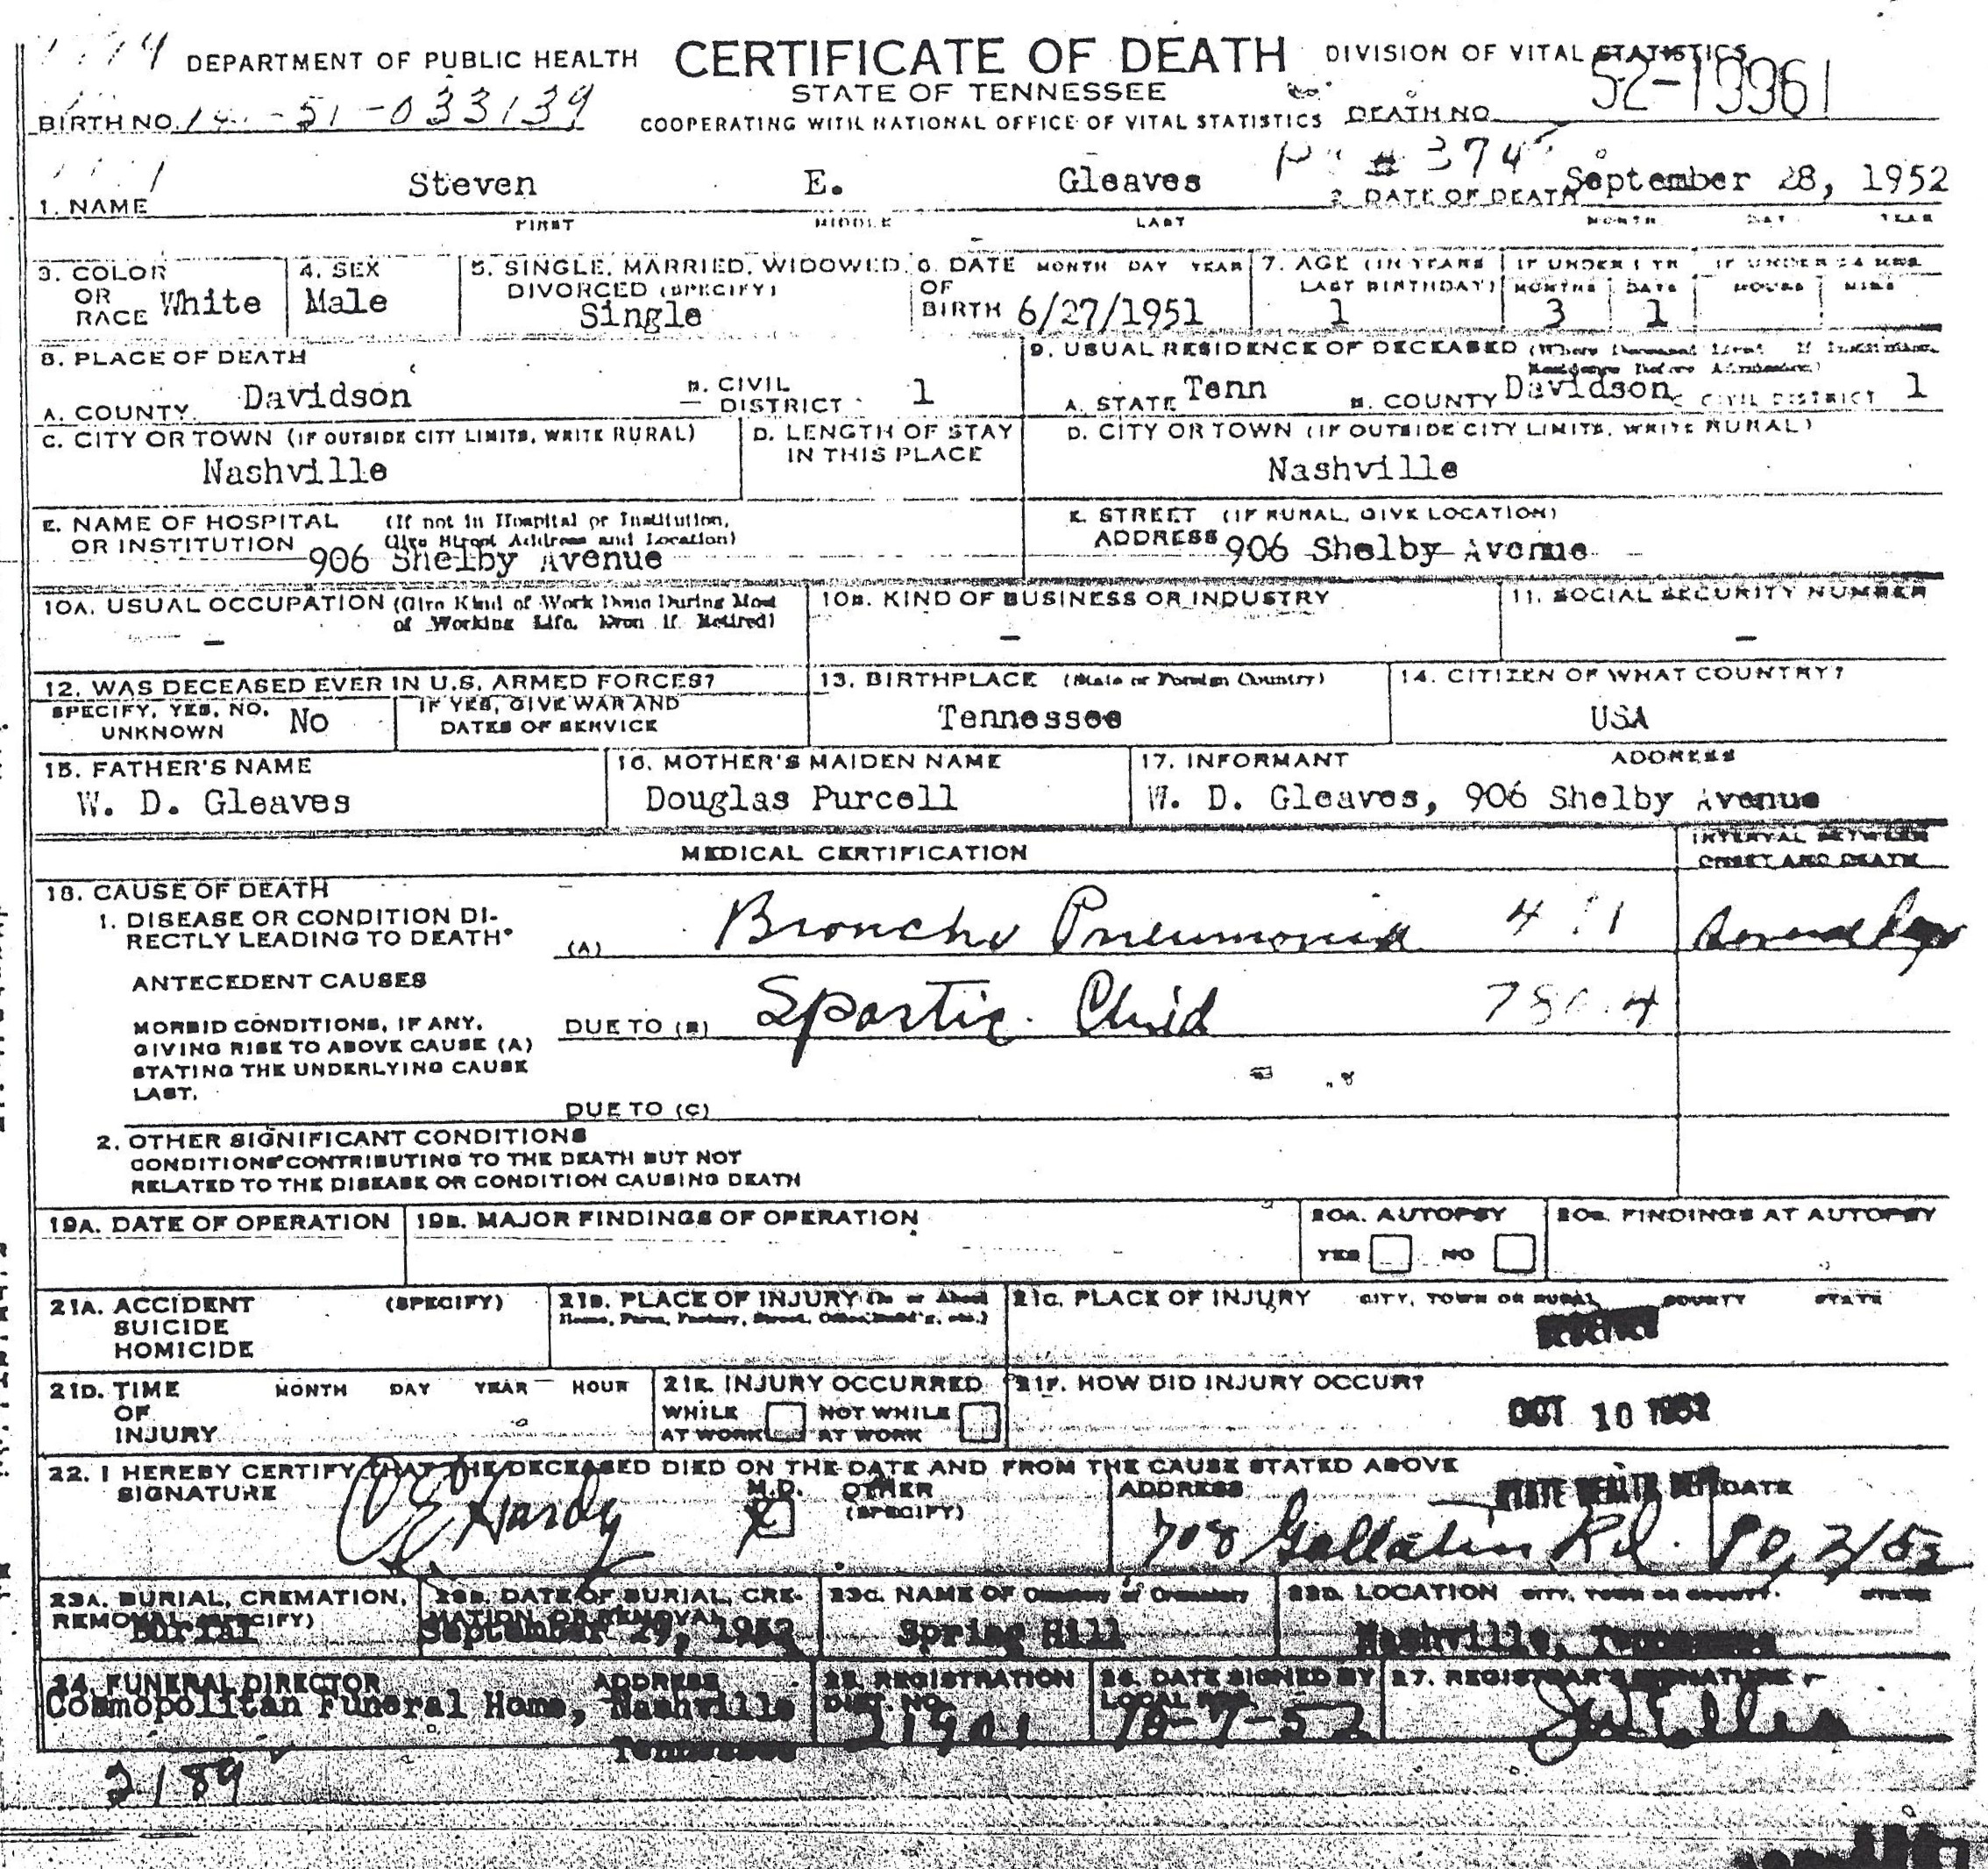 DEPARTMENT OF PUBLIC HEALTH CERTIFICATE OF DEATH DIVISION OF VITAL STATISTICS
STATE OF TENNESSEE
BIRTH NO. -51-033139 COOPERATING WITH NATIONAL OFFICE OF VITAL STATISTICS DEATH NO. 52-19961
# 374
1. NAME Steven E. Gleaves 2. DATE OF DEATH September 28, 1952
FIRST MIDDLE LAST MONTH DAY YEAR
3. COLOR OR RACE White 4. SEX Male 5. SINGLE, MARRIED, WIDOWED, DIVORCED (SPECIFY) Single 6. DATE OF BIRTH MONTH DAY YEAR 6/27/1951 7. AGE (IN YEARS LAST BIRTHDAY) 1 IF UNDER 1 YR MONTHS 3 DAYS 1 IF UNDER 24 HRS. HOURS MINS
8. PLACE OF DEATH
A. COUNTY Davidson B. CIVIL DISTRICT 1
9. USUAL RESIDENCE OF DECEASED (Where Deceased Lived If Institution, Residence Before Admission)
A. STATE Tenn B. COUNTY Davidson C. CIVIL DISTRICT 1
C. CITY OR TOWN (IF OUTSIDE CITY LIMITS, WRITE RURAL) Nashville
D. LENGTH OF STAY IN THIS PLACE
D. CITY OR TOWN (IF OUTSIDE CITY LIMITS, WRITE RURAL) Nashville
E. NAME OF HOSPITAL OR INSTITUTION (If not in Hospital or Institution, Give Street Address and Location) 906 Shelby Avenue
E. STREET ADDRESS (IF RURAL, GIVE LOCATION) 906 Shelby Avenue
10A. USUAL OCCUPATION (Give Kind of Work Done During Most of Working Life, Even If Retired) -
10B. KIND OF BUSINESS OR INDUSTRY -
11. SOCIAL SECURITY NUMBER -
12. WAS DECEASED EVER IN U.S. ARMED FORCES?
SPECIFY, YES, NO, UNKNOWN No IF YES, GIVE WAR AND DATES OF SERVICE
13. BIRTHPLACE (State or Foreign Country) Tennessee
14. CITIZEN OF WHAT COUNTRY? USA
15. FATHER'S NAME W. D. Gleaves
16. MOTHER'S MAIDEN NAME Douglas Purcell
17. INFORMANT ADDRESS W. D. Gleaves, 906 Shelby Avenue
MEDICAL CERTIFICATION
INTERVAL BETWEEN ONSET AND DEATH
18. CAUSE OF DEATH
1. DISEASE OR CONDITION DIRECTLY LEADING TO DEATH* (A) Broncho Pneumonia
ANTECEDENT CAUSES
MORBID CONDITIONS, IF ANY, GIVING RISE TO ABOVE CAUSE (A) STATING THE UNDERLYING CAUSE LAST.
DUE TO (B) Spastic Child
DUE TO (C)
2. OTHER SIGNIFICANT CONDITIONS
CONDITIONS CONTRIBUTING TO THE DEATH BUT NOT
RELATED TO THE DISEASE OR CONDITION CAUSING DEATH
19A. DATE OF OPERATION 19B. MAJOR FINDINGS OF OPERATION 20A. AUTOPSY YES NO 20B. FINDINGS AT AUTOPSY
21A. ACCIDENT SUICIDE HOMICIDE (SPECIFY)
21B. PLACE OF INJURY (In or About Home, Farm, Factory, Street, Office Build'g, etc.)
21C. PLACE OF INJURY CITY, TOWN OR RURAL COUNTY STATE
21D. TIME OF INJURY MONTH DAY YEAR HOUR
21E. INJURY OCCURRED WHILE AT WORK NOT WHILE AT WORK
21F. HOW DID INJURY OCCUR?
OCT 10 1952
STATE HEALTH DEPT
22. I HEREBY CERTIFY THAT THE DECEASED DIED ON THE DATE AND FROM THE CAUSE STATED ABOVE
SIGNATURE C E Hardy M.D. X OTHER (SPECIFY) ADDRESS 708 Gallatin Rd. DATE
23A. BURIAL, CREMATION, REMOVAL (SPECIFY) Burial
23B. DATE OF BURIAL, CREMATION, OR REMOVAL September 29, 1952
23C. NAME OF Cemetery or Crematory Spring Hill
23D. LOCATION CITY, TOWN OR COUNTY STATE Nashville, Tennessee
24. FUNERAL DIRECTOR ADDRESS Cosmopolitan Funeral Home, Nashville Tennessee
25. REGISTRATION DIST. NO. 1901
26. DATE SIGNED BY LOCAL REG. 10-7-52
27. REGISTRAR'S SIGNATURE
2189